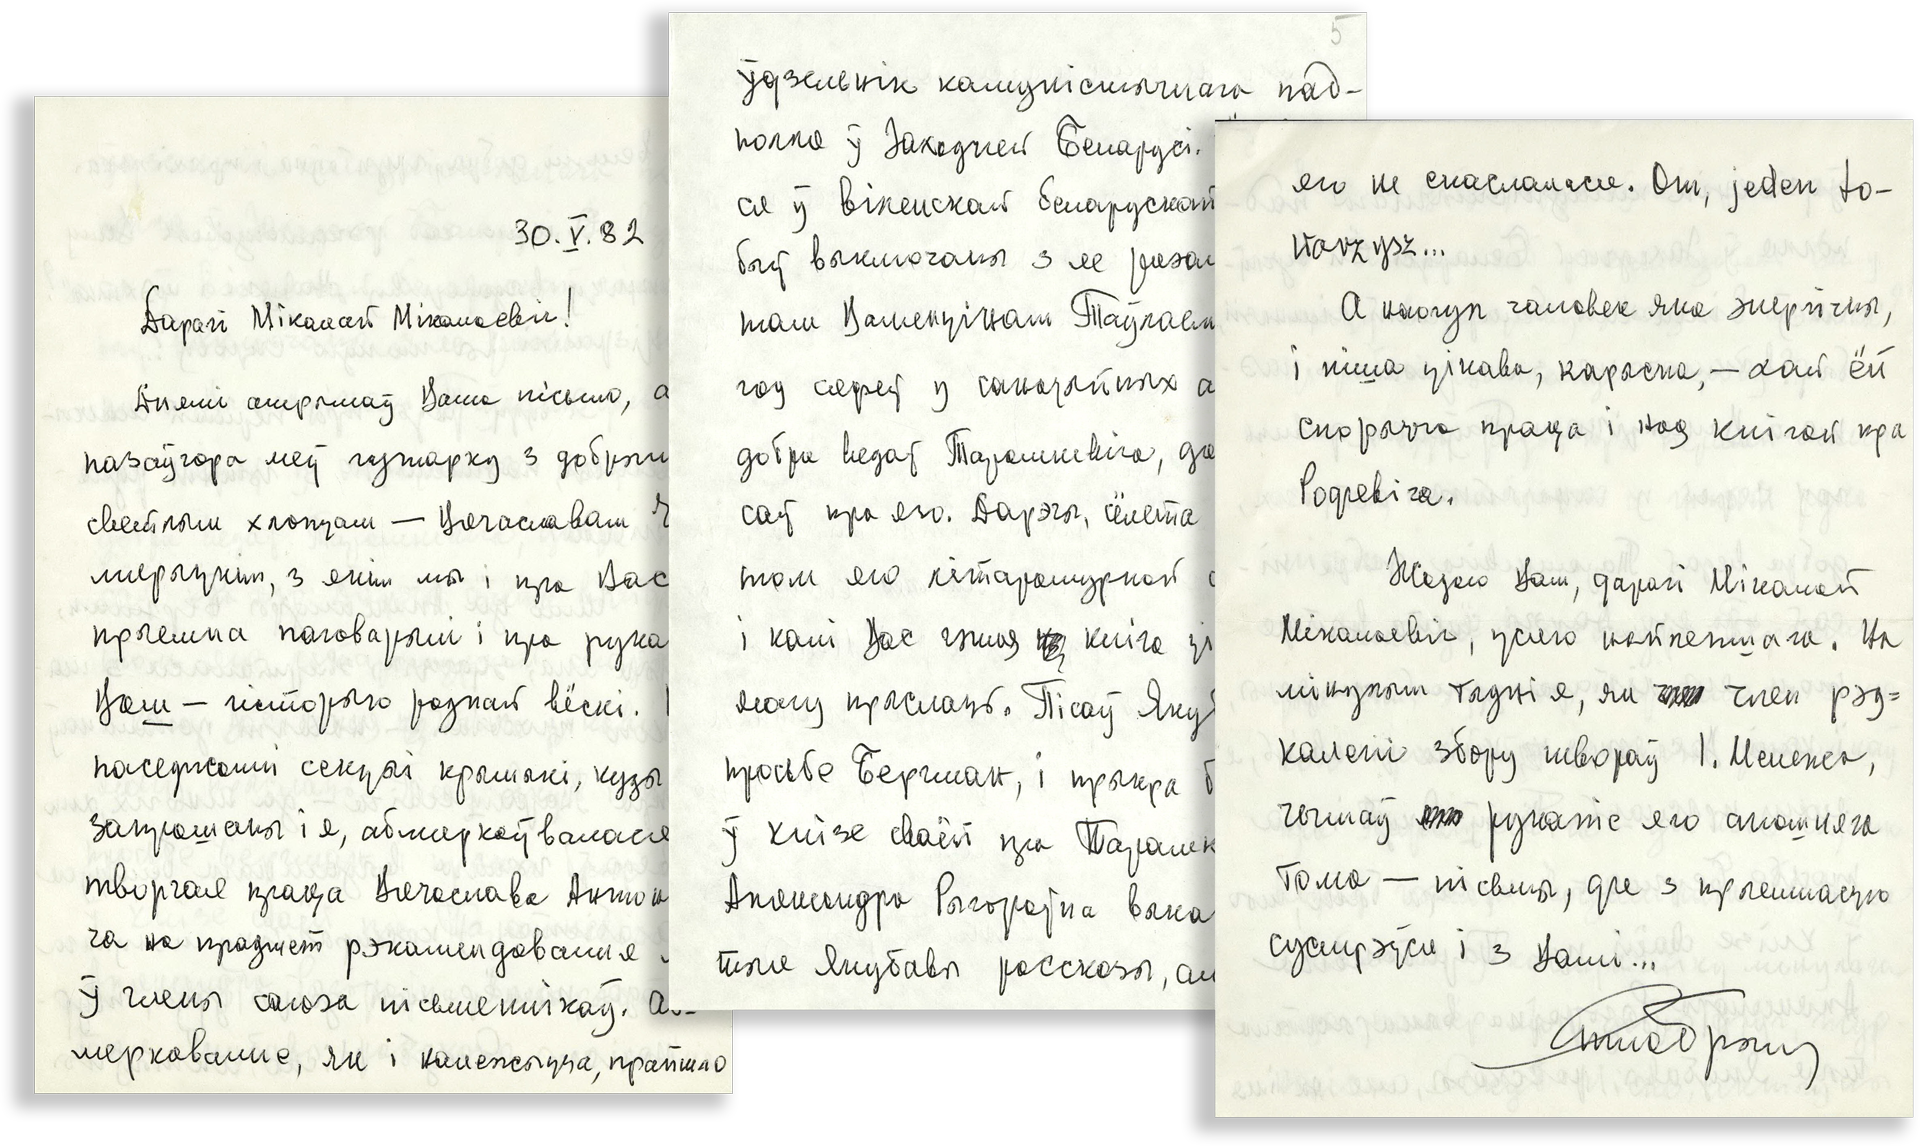 30.V.82
Дарагі Мікалай Мікалаевіч!
Днямі атрымаў Ваша пісьмо, а
пазаўчора меў гутарку з добрым
светлым хлопцам — Вячаславам
мерыцкім, з якім мы і пра Вас
прыемна пагаварылі і пра рука
Ваш — гісторыю роднай вёскі.
паседжанні секцыі крытыкі, куды
запрошаны і я, абмяркоўвалася
творчая праца Вячаслава Антон
ча на прадмет рэкамендавання
ў члены саюза пісьменнікаў. Аб-
меркаванне, як і належыцца, прайшло
5
ўдзельнік камуністычнага пад-
полля ў Заходняй Беларусі.
ся ў віленскай беларускай
быў выключаны з яе разам
там Валянцінам Таўлаем
год сядзеў у санацыйных
добра ведаў Тарашкевіча, да
саў пра яго. Дарэчы, сёлета
том яго літаратурнай
і калі Вас гэтая кніга ці
магу прыслаць. Пісаў Яку
просьбе Бергман, і прыкра
ў кнізе сваёй пра Тарашк
Аляксандра Рыгораўна выка
тыя Якубавы рассказы, ал
яго не спаслалася. От, jeden to-
warzysz...
А наогул чалавек яна энергічны,
і піша цікава, карысна, — хай ёй
спорыцца праца і над кнігай пра
Родзевіча.
Жадаю Вам, дарагі Мікалай
Мікалаевіч, усяго найлепшага. На
мінулым тыдні я, як член рэд-
калегіі збору твораў І. Мележа,
чытаў рукапіс яго апошняга
тома — пісьмы, дзе з прыемнасцю
сустрэўся і з Вамі...